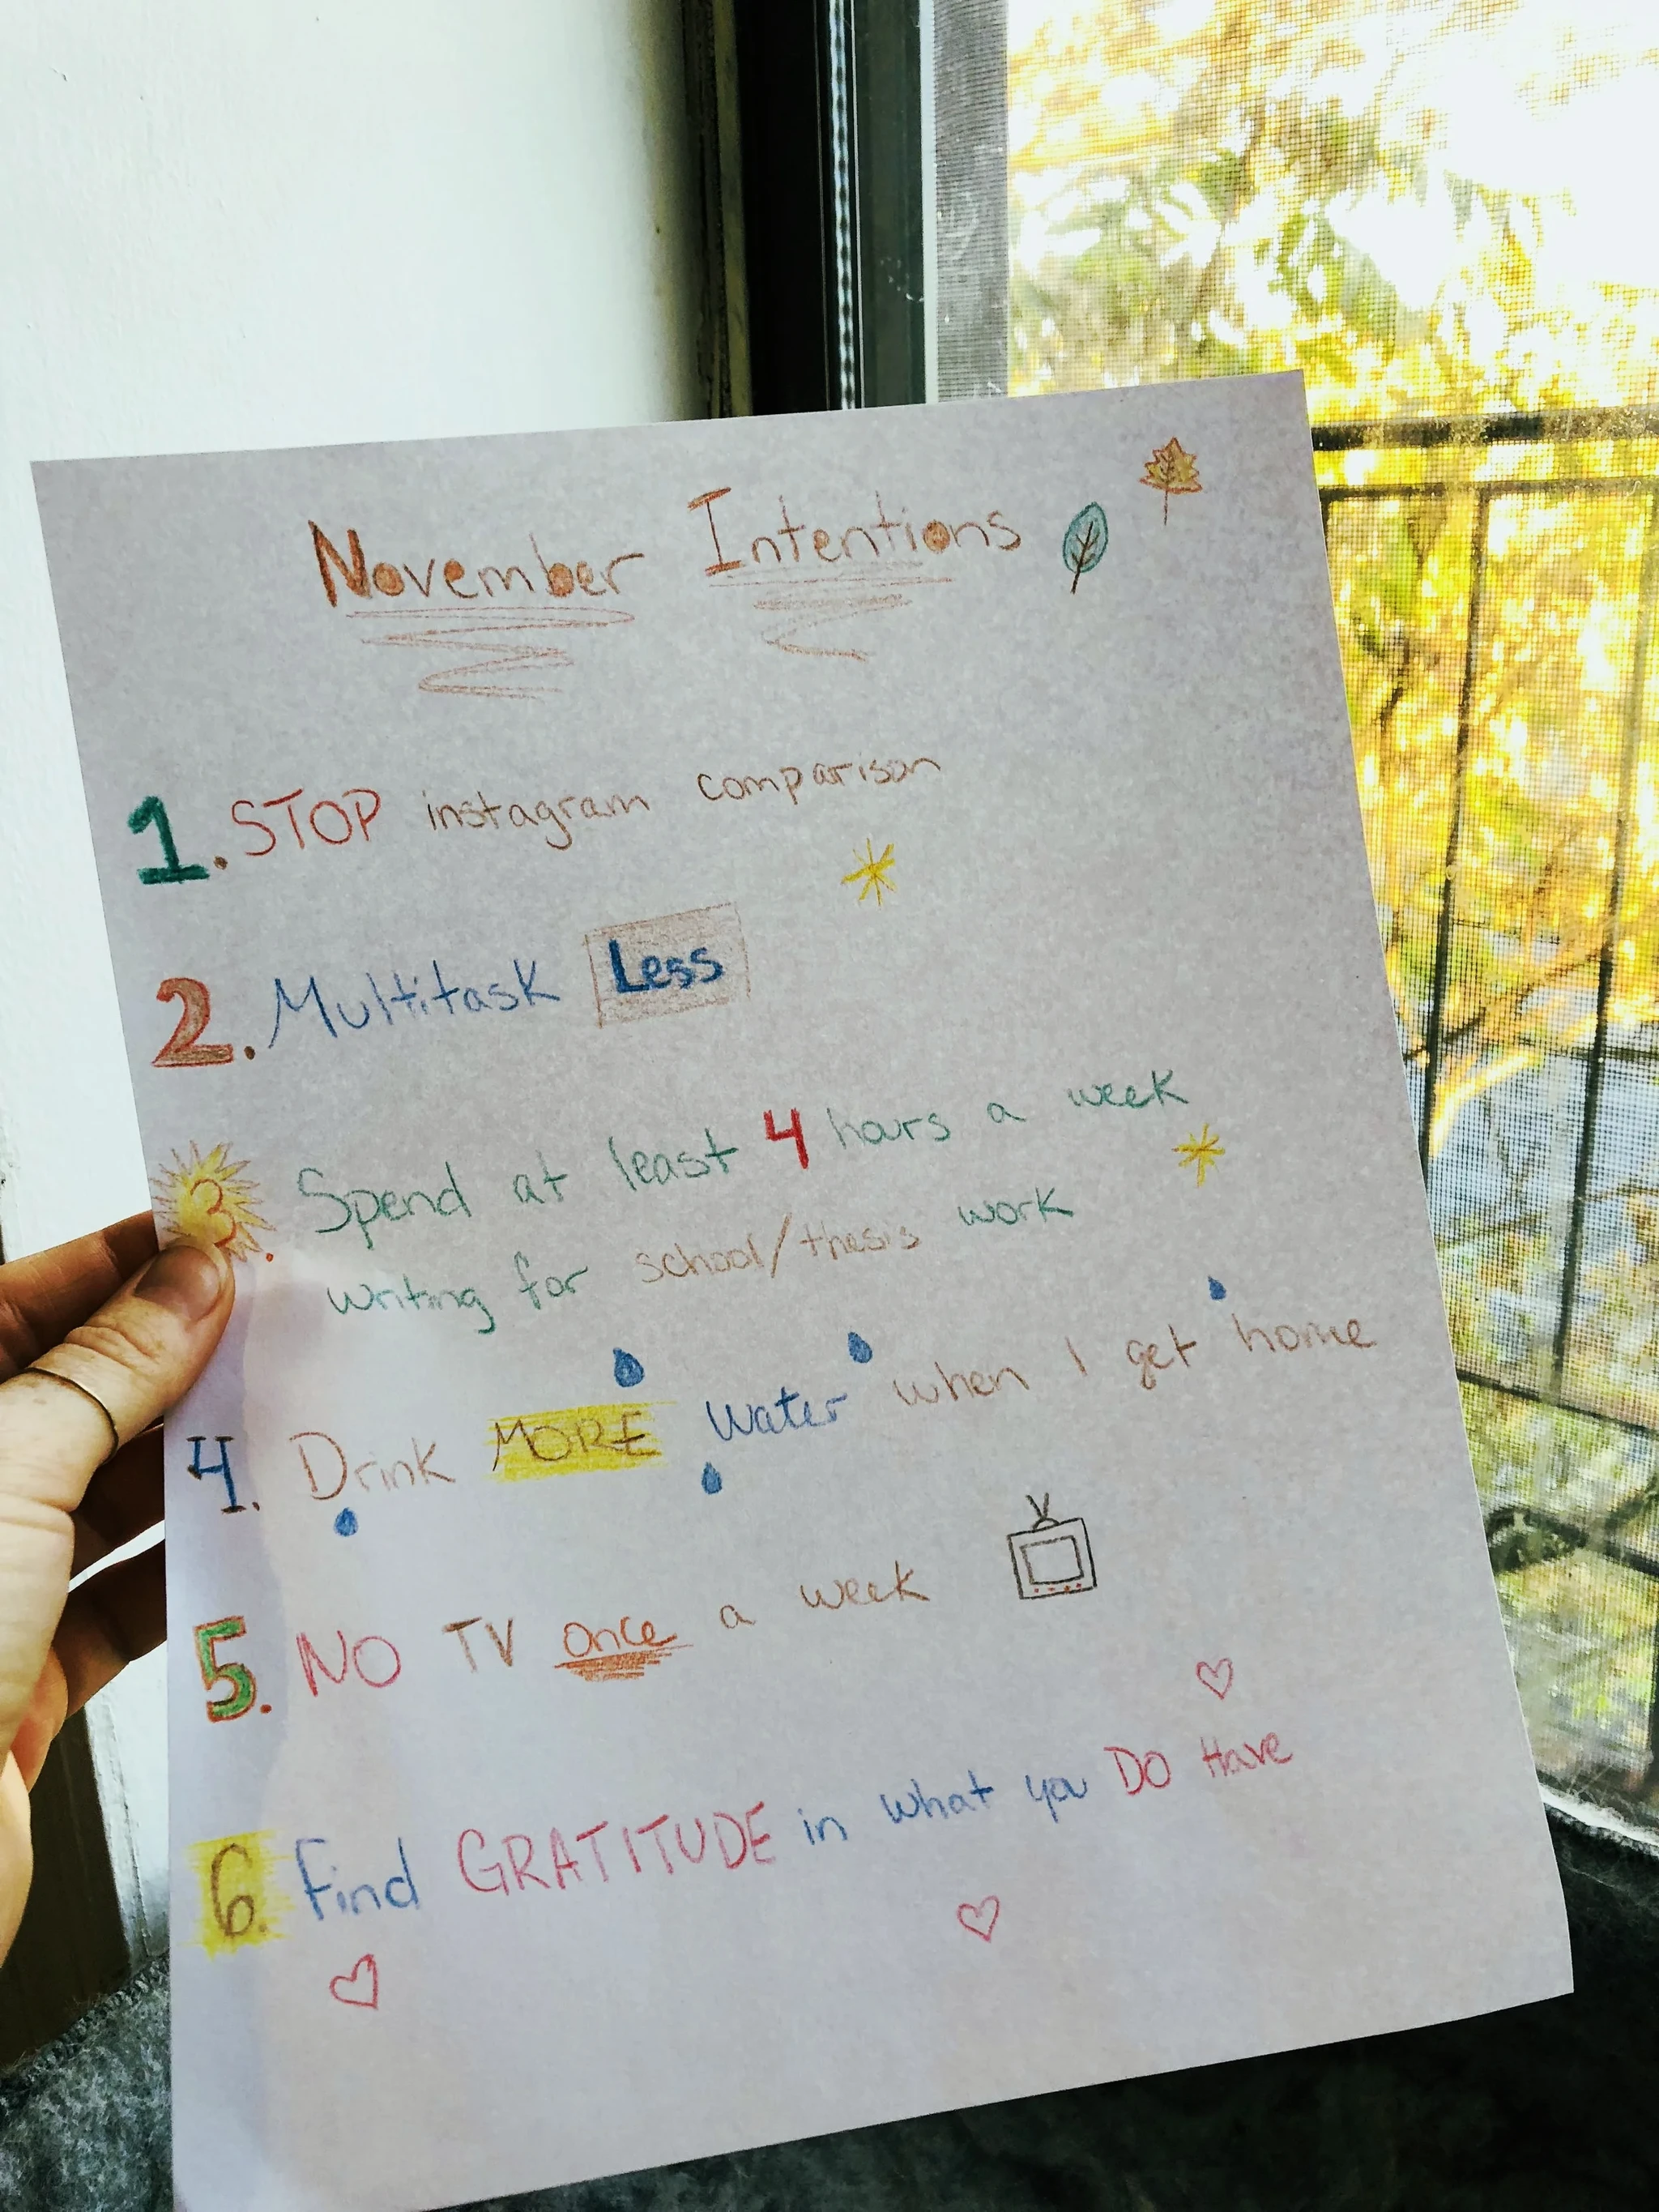 November Intentions
1. STOP instagram comparison
2. Multitask Less
3. Spend at least 4 hours a week
writing for school/thesis work
4. Drink MORE water when I get home
5. NO TV once a week
6. Find GRATITUDE in what you DO Have